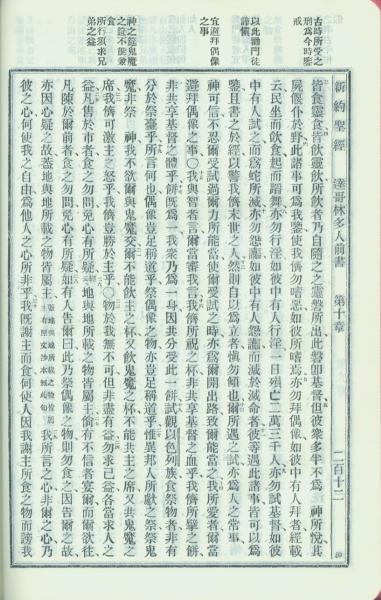 古時所受之
刑爲今時鑒
戒
以此勸門徒
謹愼
宜避拜偶像
之事
神之筵鬼魔
之筵不能兼
食
所行須求兄
弟之益
新約聖經 達哥林多人前書 第十章 二百十二
皆食靈食皆飲靈飲所飲者乃自隨之之靈磐所出此磐卽基督但彼衆多半不爲 神所悅其
屍偃仆於野此諸事可爲我鑒使我儕勿嗜惡如彼所嗜焉亦勿拜偶像如彼中有人拜者經載
云民坐而飲食起而蹈舞亦勿行淫如彼中有人行淫一日殞亡二萬三千人亦勿試基督如彼
中有人試之而爲蛇所滅亦勿怨讟如彼中有人怨讟而滅於滅命者彼等遇此諸事皆可以爲
鑒且書之於經以警我儕末世之人然則自以爲立者愼勿傾也爾所遇之試乃爲人之常事
神可信不忍爾受試過爾力所能當使爾受試之時亦爲爾開出路致爾能當之我所愛者爾當
避拜偶像之事〇我與智者言爾當審我言我儕所祝之杯非共享基督之血乎我儕所擘之餅
非共享基督之體乎餅既爲一我衆乃爲一身因共分受此一餅試觀以色列族食祭物者非有
分於祭臺乎所言何也偶像豈足稱道乎祭偶像之物亦豈足稱道乎惟異邦人所獻之祭祭鬼
魔非祭 神我不欲爾與鬼魔交爾不能飲主之杯又飲鬼魔之杯不能共主之席又共鬼魔之
席我儕可激主之怒乎我儕豈勝於主乎〇物於我無不可但非盡有益勿求己益各當求人之
益凡售於市者食之勿問免心有所疑地與地所載之物皆屬主倘有不信者宴爾而爾欲往
凡陳於爾前者食之勿問免心有所疑如有人告爾曰此乃祭偶像之物則勿食之因告爾之故
亦因心疑之故蓋地與地所載之物皆屬主我所言之心非爾之心乃
彼之心何使我之自由爲他人之心所非乎我既謝主而食何使人因我謝主所食之物而謗我